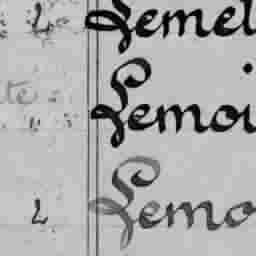 2 Lemel
te Lemoi
2 Lemo